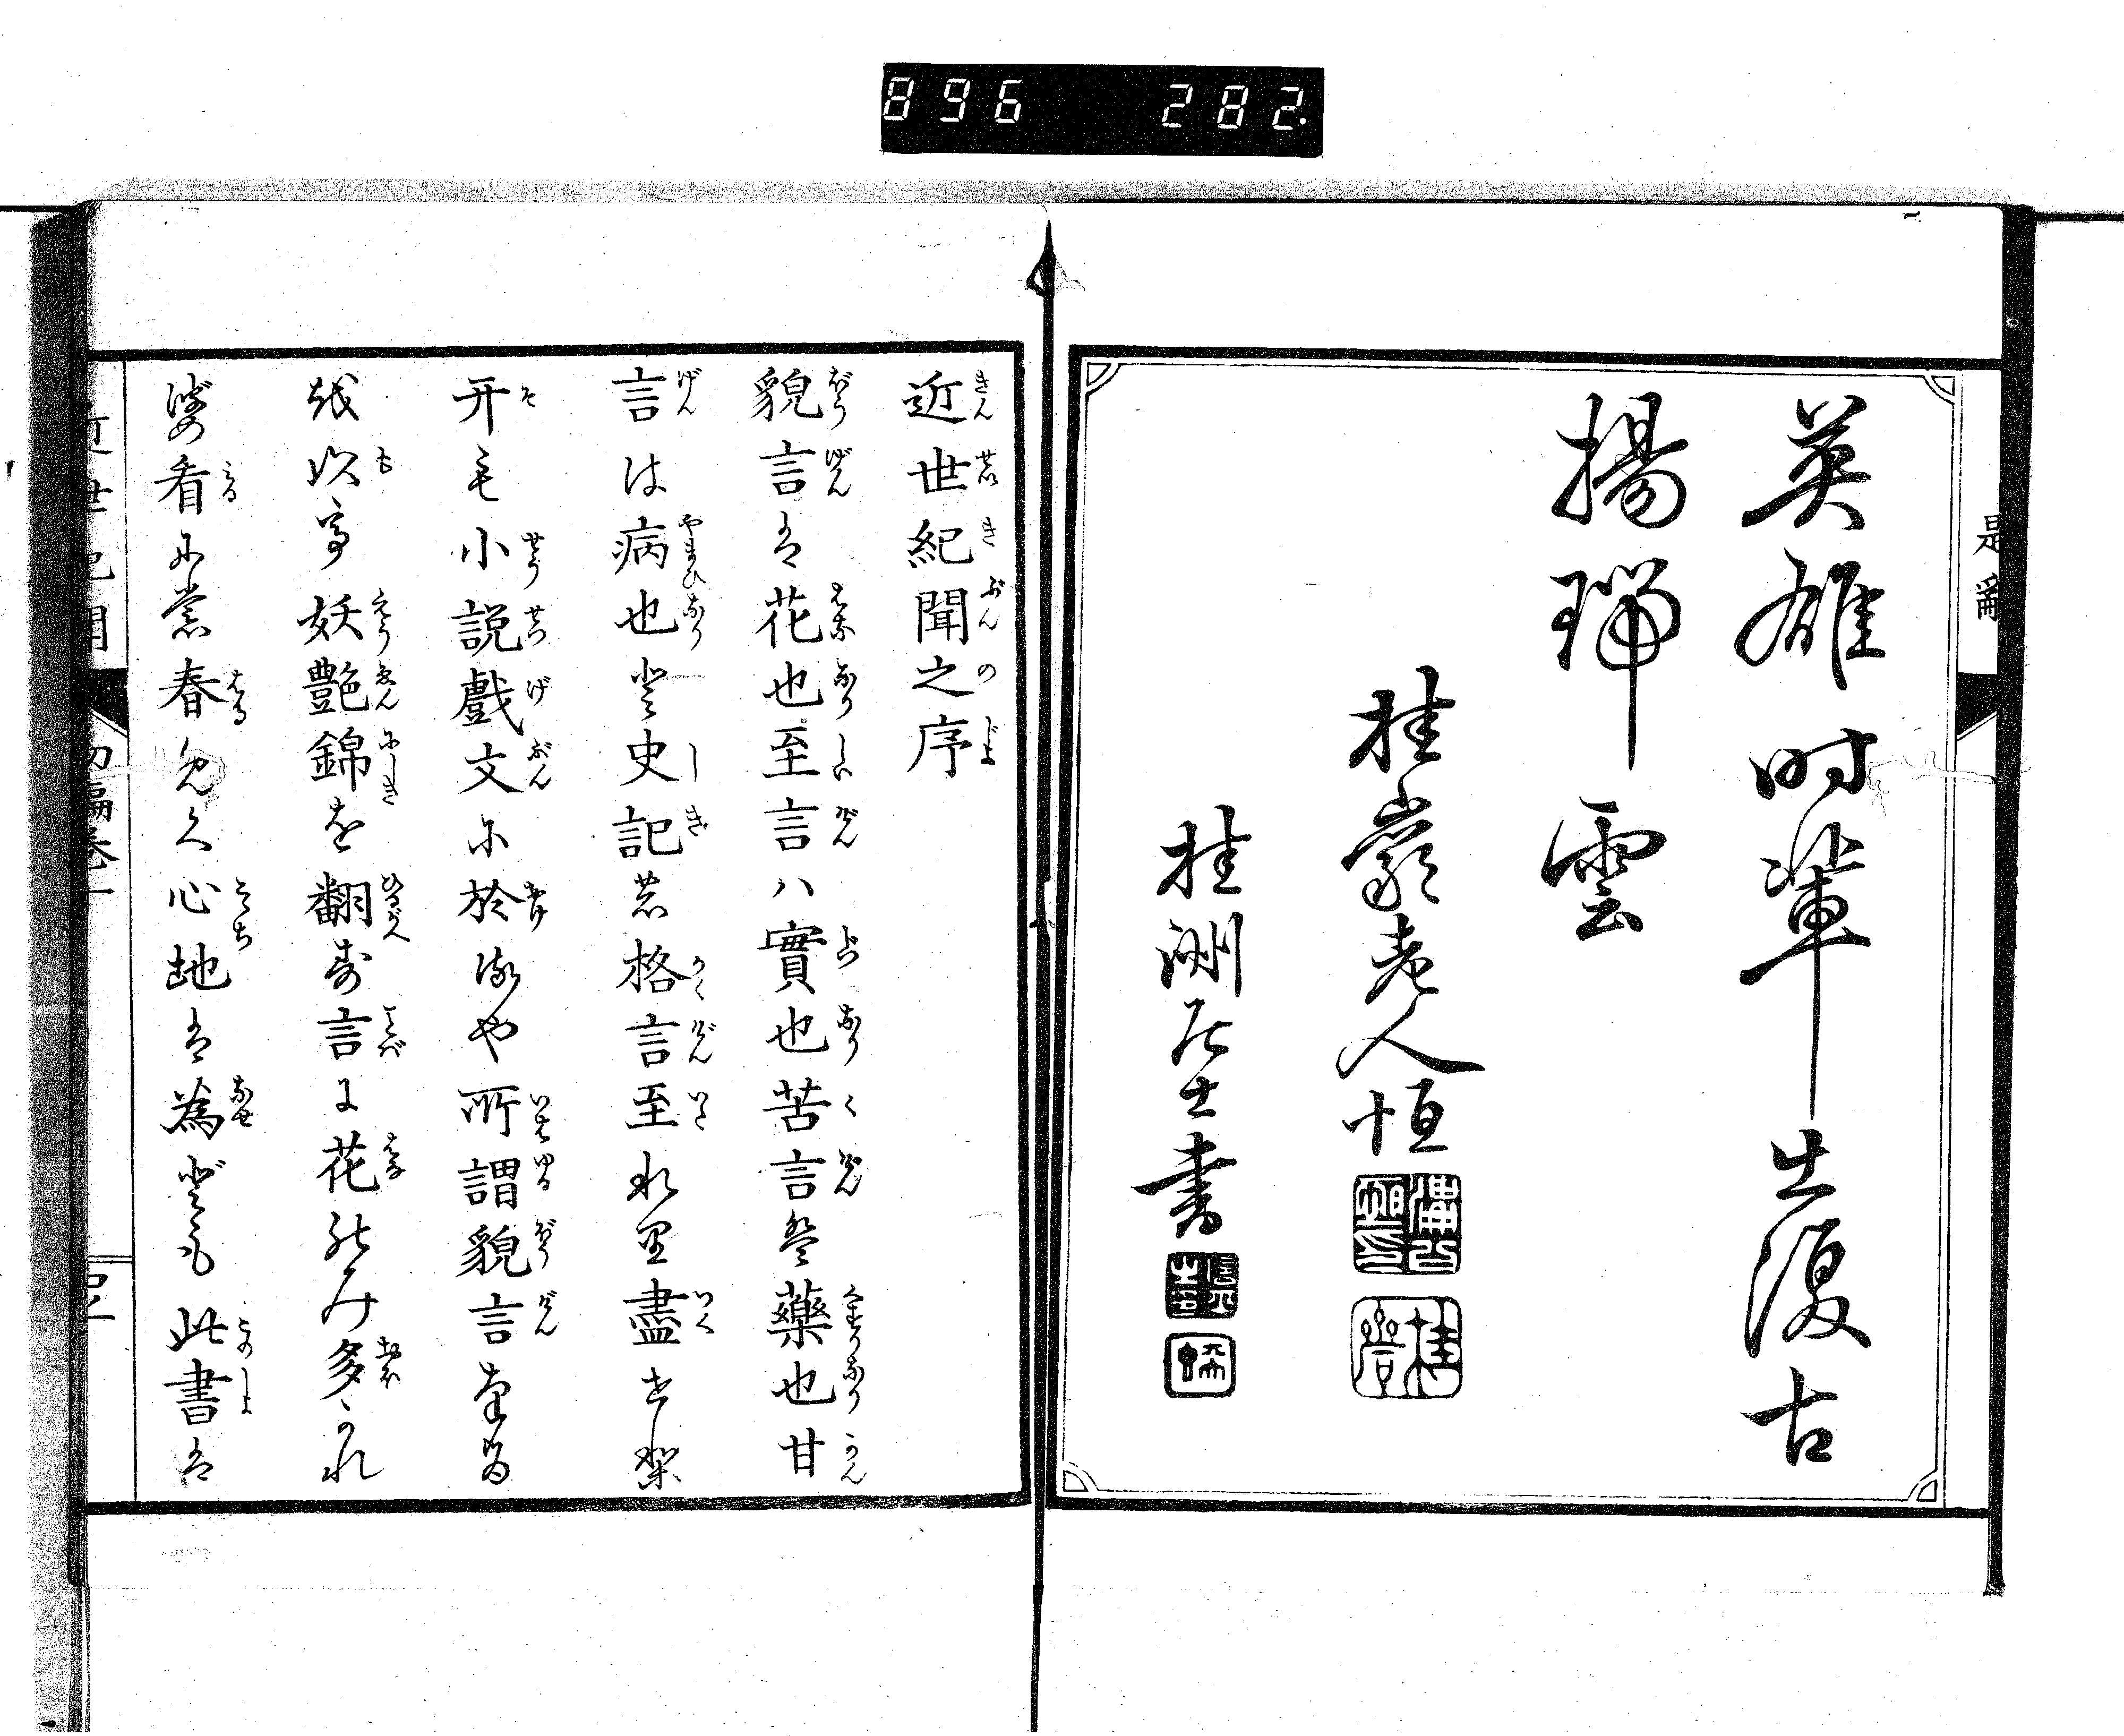 896 282
題辭
英雄時輩出復古
揚瑞雲
桂巖老人恒
桂洲居士書
近世紀聞之序
貌言は花也至言ハ實也苦言は藥也甘
言は病也と史記の格言至れり盡せり
开も小説戯文に於るや所謂貌言なる
越以て妖艶錦を翻す言に花のみ多かれ
ば看に當春めく心地は為ども此書は
近世紀聞
初編卷一